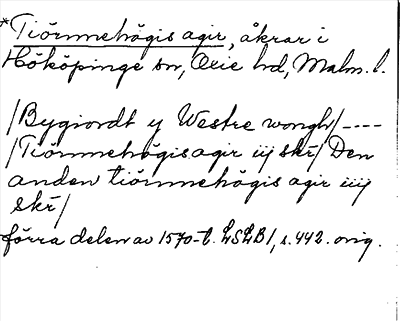 *Tiörnnehögis agir, åkrar i
Hököpinge sn, Oxie hd, Malm. l.
/Bygiordt y Westre wongh/----
/Tiörnnehögis agir iij skr/ Den
anden tiörnnehögis agir iiij
skr/
förra delen av 1570-t. LSLB1, s. 442. orig.